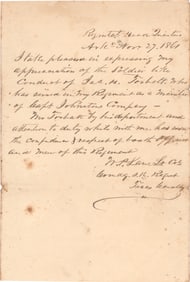 Regimental Head Quarters
Ark. Nov. 27, 1861
I take pleasure in expressing my
appreciation of the Soldier like
Conduct of Jas. H. Who
has served in my Regiment as a Member
of Capt Johnston's Company —
Mr. by his deportment and
attention to duty while with me has won
the confidence & respect of both officers
and men of this Regiment
W. P. Lane Lt. Col
Comdg Regmt
Texas Cavalry